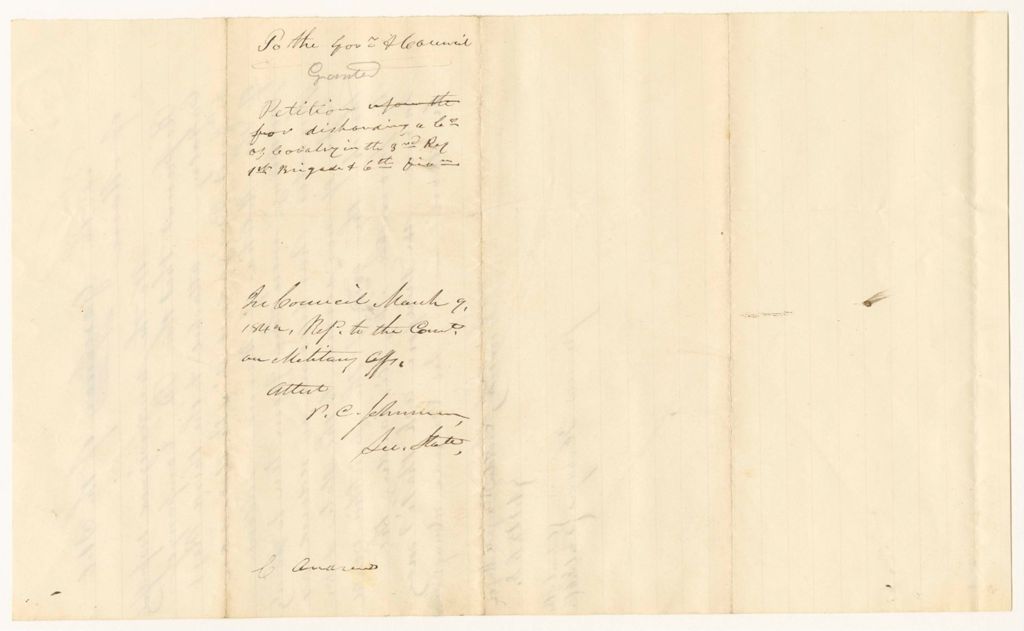 To the Gov.r & Council
Granted
Petition upon the
for disbanding a Co
of Cavalry in the 3rd Reg
1st Brigade & 6th Divn
In Council March 9,
1842, Ref. to the Comt.
on Military Affs.
Attest
P. C. Johnson,
Sec. State,
C Andrews